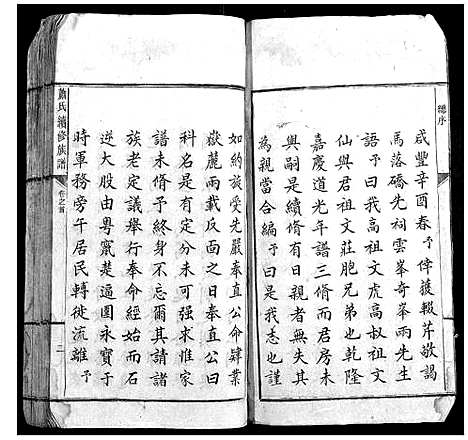 總序
咸豐辛酉春予倖獲輟芹敬謁
馬落礄先祠雲峯奇峯雨先生
語予曰我高祖文虎高叔祖文
仙與君祖文莊胞兄弟也乾隆
嘉慶道光年譜三脩而君房未
與嗣是續脩有日親者無失其
為親當合編予曰是我志也謹
如約旋受先嚴奉直公命肄業
嶽麓兩載反面之日奉直公曰
科名是有定分未可强求惟家
譜未脩予終身不忘爾其請諸
族老定議舉行奉命經始而石
逆大股由粵竄楚遍圍永寶于
時軍務旁午居民轉徙流離予
蕭氏續修族譜
卷之首
二